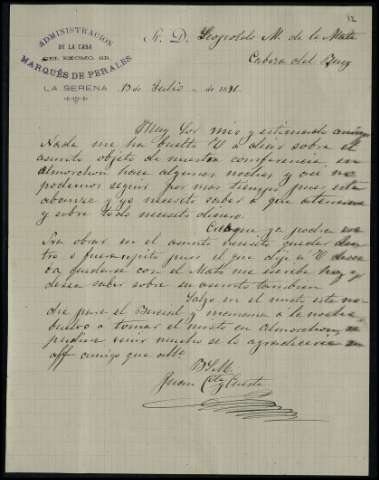 12
ADMINISTRACION
DE LA CASA
DEL EXCMO. SR.
MARQUÉS DE PERALES
LA SERENA
Sr. D. Leopoldo M. de la Mata
Cabeza del Buey
13 de Julio de 1891.
Muy Sor mio y estimado amigo
Nada me ha vuelto V a decir sobre el
asunto objeto de nuestra conferencia en
Almorchon hace algunas noches y asi no
podemos seguir por mas tiempo pues esta
y yo necesito saber a que atenerme
y sobre todo necesito dinero.
Creo que ya podra
obrar en el asunto necesito quedar den
tro o fuera pues el que dije a V desea
ba con el Mata me escribe hoy y
desea saber sobre su asunto tambien.
Salgo en el misto esta no
che para el y mañana a la noche
vuelvo a tomar el misto en Almorchon, si
pudiera venir mucho se lo agradeceria su
aff amigo que
B S M
Juan